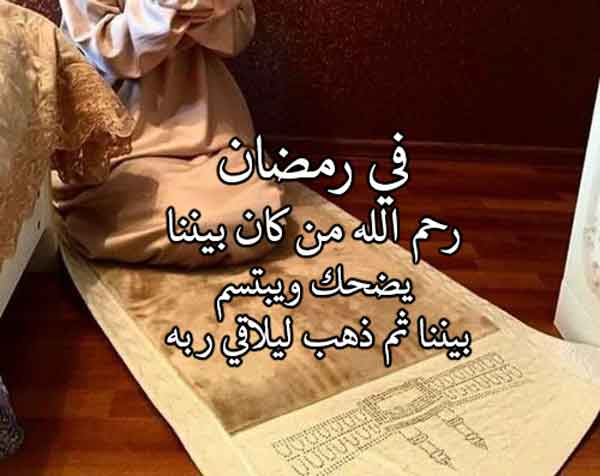 في رمضان
رحم الله من كان بيننا
يضحك ويبتسم
بيننا ثم ذهب ليلاقي ربه